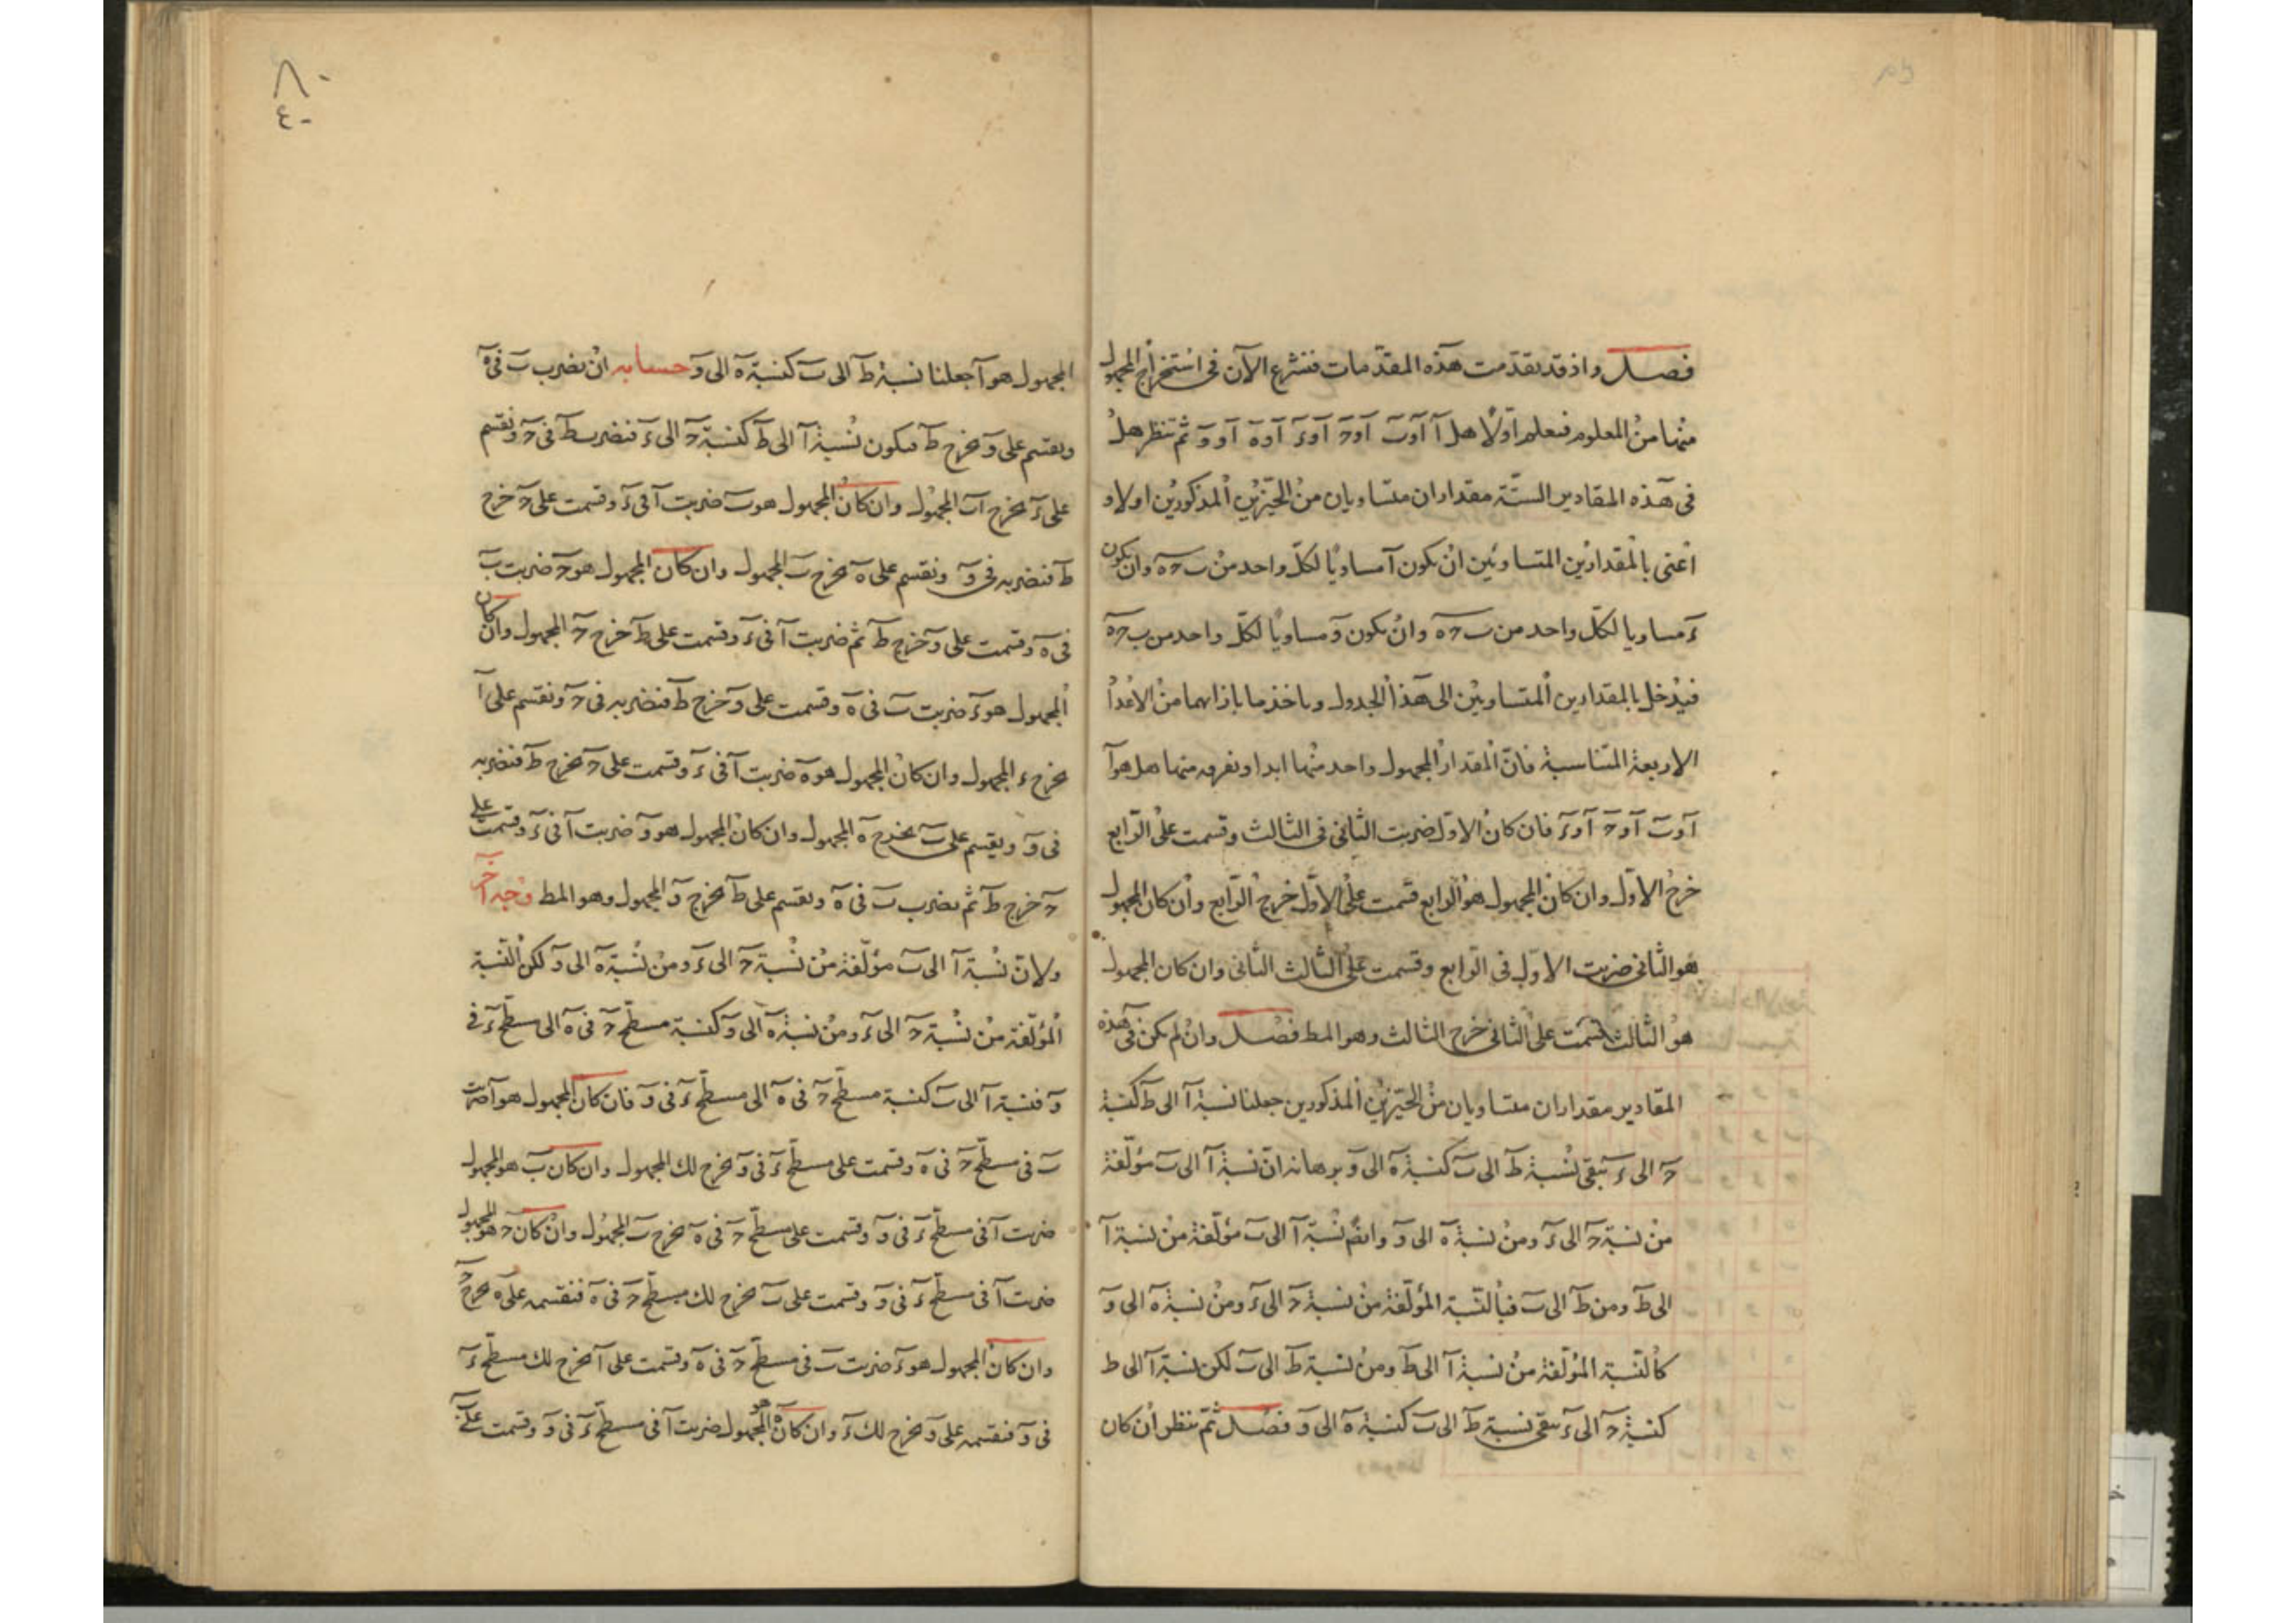 فصل واذ قد تقدمت هذه المقدمات فنشرع الآن فى استخراج المجهول
منها من المعلوم فنعلم اوّلا هل آ آو بَ آو حَ آو ءَ آو هَ آو وَ ثم ننظر هل
فى هذه المقادير الستة مقداران متساويان من الحيّزين المذكورين اولا و
اعنى بالمقدارين المتساويين ان يكون آ مساويا لكل واحد من بَ حَ هَ وان يكون
ءَ مساويا لكل واحد من بَ حَ هَ وان يكون وَ مساويا لكل واحد من بَ حَ هَ
فيدخل بالمقدارين المتساويين الى هذا الجدول وياخذ ما بازائهما من الاعدا
الاربعة المتناسبة فانّ المقدار المجهول واحد منها ابدا ونعرفه منها هل هو آ
آو بَ آو حَ آو ءَ فان كان الاول ضربت الثانى فى الثالث وقسمت على الرابع
خرج الاوّل وان كان المجهول هو الرابع قسمت على الاوّل خرج الرابع وان كان المجهول
هو الثانى ضربت الاوّل فى الرابع وقسمت على الثالث الثانى وان كان المجهول
هو الثالث قسمت على الثانى خرج الثالث وهو المط فصل وان لم يكن فى هذه
المقادير مقداران متساويان من الحيّزين المذكورين جعلنا نسبة آ الى طَ كنسبة
حَ الى ءَ تبقى نسبة طَ الى بَ كنسبة هَ الى وَ برهانه انّ نسبة آ الى بَ مؤلّفة
من نسبة حَ الى ءَ ومن نسبة هَ الى وَ وايضً نسبة آ الى بَ مؤلّفة من نسبة آ
الى طَ ومن طَ الى بَ فبالنسبة المؤلّفة من نسبة حَ الى ءَ ومن نسبة هَ الى وَ
كالنسبة المؤلّفة من نسبة آ الى طَ ومن نسبة طَ الى بَ لكن نسبة آ الى ط
كنسبة حَ الى ءَ تبقى نسبة طَ الى بَ كنسبة هَ الى وَ فصل ثمّ ننظر ان كان
٨٠
٤٠
المجهول هو آ جعلنا نسبة طَ الى بَ كنسبة هَ الى وَ حسابه ان نضرب بَ فى هَ
ونقسم على وَ يخرج طَ فيكون نسبة آ الى طَ كنسبة حَ الى ءَ فنضرب طَ فى حَ ونقسم
على ءَ يخرج آ المجهول وان كان المجهول هو بَ ضربت آ فى ءَ وقسمت على حَ خرج
طَ فنضربه فى وَ ونقسم على هَ يخرج بَ المجهول وان كان المجهول هو حَ ضربت بَ
فى هَ وقسمت على وَ خرج طَ ثم ضربت آ فى ءَ وقسمت على طَ خرج حَ المجهول وان كان
المجهول هو ءَ ضربت بَ فى هَ وقسمت على وَ خرج طَ فنضربه فى حَ ونقسم على آ
يخرج ءَ المجهول وان كان المجهول هو هَ ضربت آ فى ءَ وقسمت على حَ يخرج طَ فنضربه
فى وَ ونقسم على بَ يخرج هَ المجهول وان كان المجهول هو وَ ضربت آ فى ءَ وقسمت على
حَ خرج طَ ثم نضرب بَ فى هَ ونقسم على طَ يخرج وَ المجهول وهو المط وجه آخر
ولانّ نسبة آ الى بَ مؤلّفة من نسبة حَ الى ءَ ومن نسبة هَ الى وَ لكن النسبة
المؤلّفة من نسبة حَ الى ءَ ومن نسبة هَ الى وَ كنسبة مسطّح حَ فى هَ الى مسطّح ءَ فى
وَ فنسبة آ الى بَ كنسبة مسطّح حَ فى هَ الى مسطّح ءَ فى وَ فان كان المجهول هو آ ضربت
بَ فى مسطّح حَ فى هَ وقسمت على مسطّح ءَ فى وَ يخرج لك المجهول وان كان بَ هو المجهول
ضربت آ فى مسطّح ءَ فى وَ وقسمت على مسطّح حَ فى هَ يخرج بَ المجهول وان كان حَ هو المجهول
ضربت آ فى مسطّح ءَ فى وَ وقسمت على بَ يخرج لك مسطّح حَ فى هَ فنقسمه على هَ يخرج حَ
وان كان المجهول هو ءَ ضربت بَ فى مسطّح حَ فى هَ وقسمت على آ يخرج لك مسطّح ءَ
فى وَ فنقسمه على وَ يخرج لك ءَ وان كان هَ هو المجهول ضربت آ فى مسطّح ءَ فى وَ وقسمت على بَ